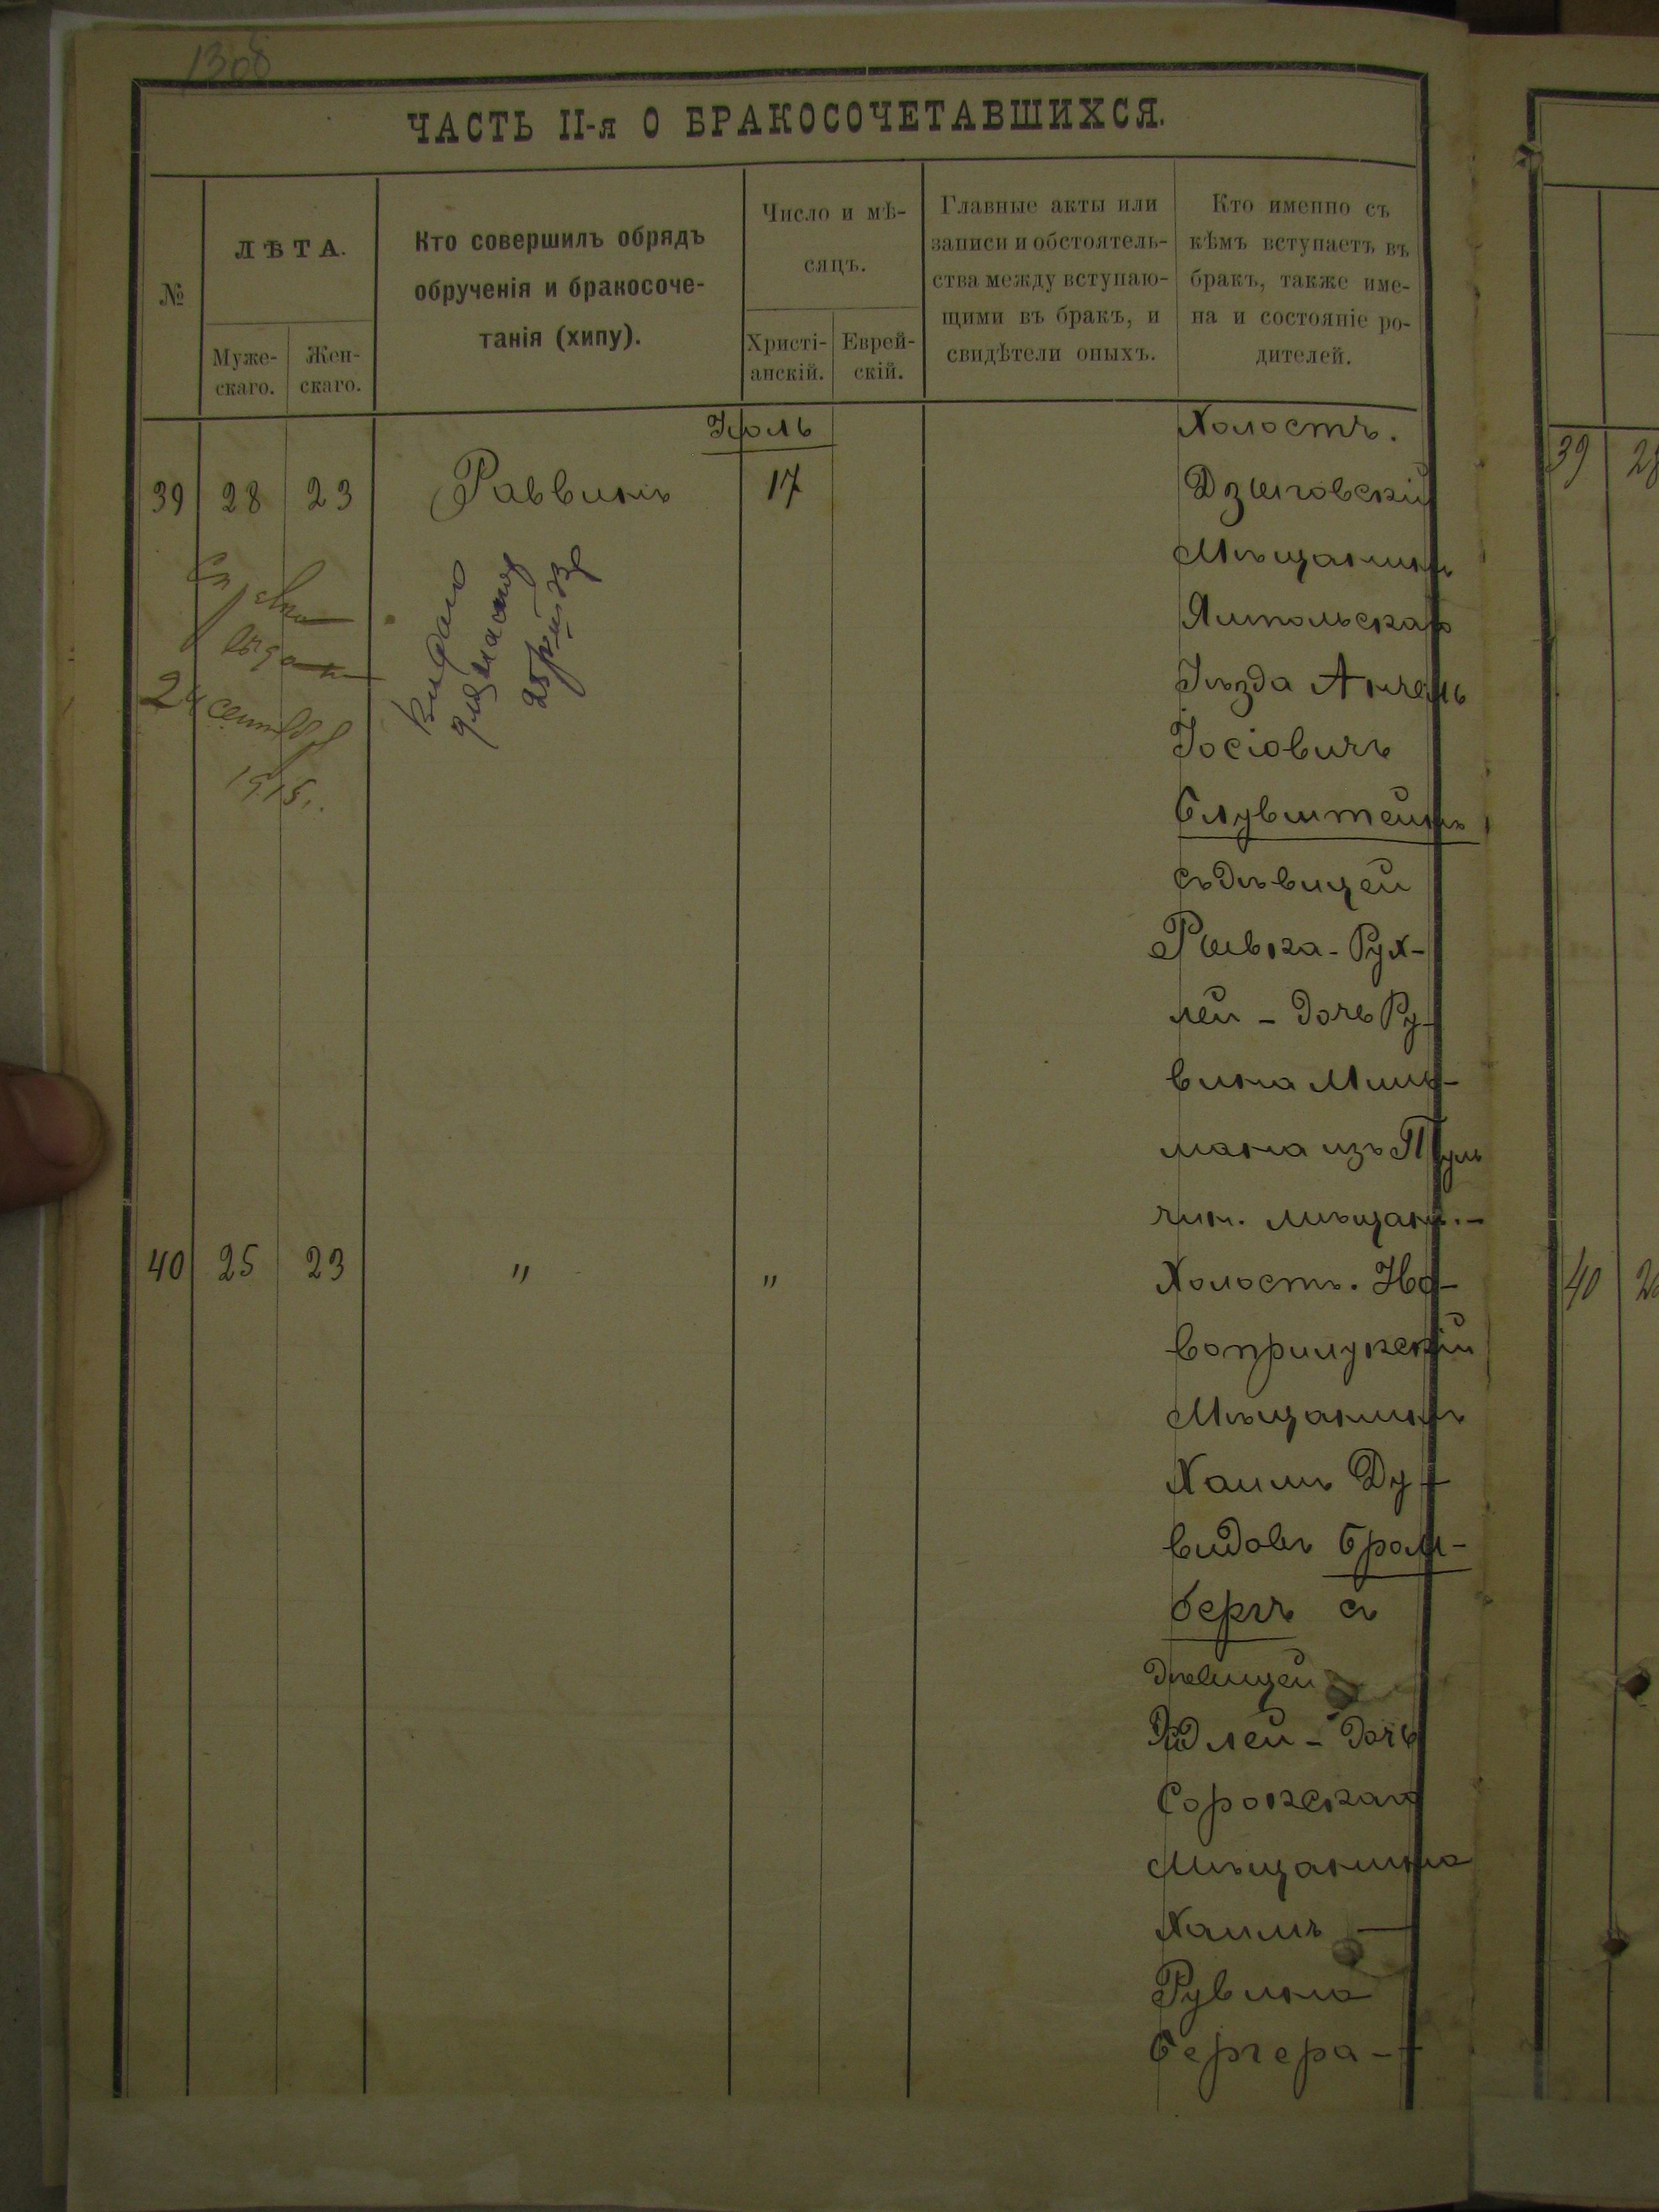 1308
ЧАСТЬ II-я О БРАКОСОЧЕТАВШИХСЯ.
№
ЛѢТА.
Муже-
скаго.
Жен-
скаго.
Кто совершилъ обрядъ
обрученія и бракосоче-
танія (хипу).
Число и мѣ-
сяцъ.
Христі-
анскій.
Еврей-
скій.
Главные акты или
записи и обстоятель-
ства между вступаю-
щими въ бракъ, и
свидѣтели оныхъ.
Кто именно съ
кѣмъ вступаетъ въ
бракъ, также име-
на и состояніе ро-
дителей.
Іюль
39 28 23 Раввинъ 17
Холостъ.
Дзыговскій
Мѣщанинъ
Ямпольскаго
Уѣзда Анчель
Іосіовичъ
Блувштейнъ
съ дѣвицей
Рывка-Рух-
лей - дочь Ру-
вина Миль-
мана изъ Туль
чин. мѣщан. -
24 сентября
1915.
40 25 23 " "
Холостъ. Но-
воприлукскій
Мѣщанинъ
Хаимъ Ду-
видовъ Бром-
бергъ съ
дѣвицей
Эйдлей - дочь
Сорокскаго
Мѣщанина
Хаимъ -
Рувина
Бергера -
39 28
40 2